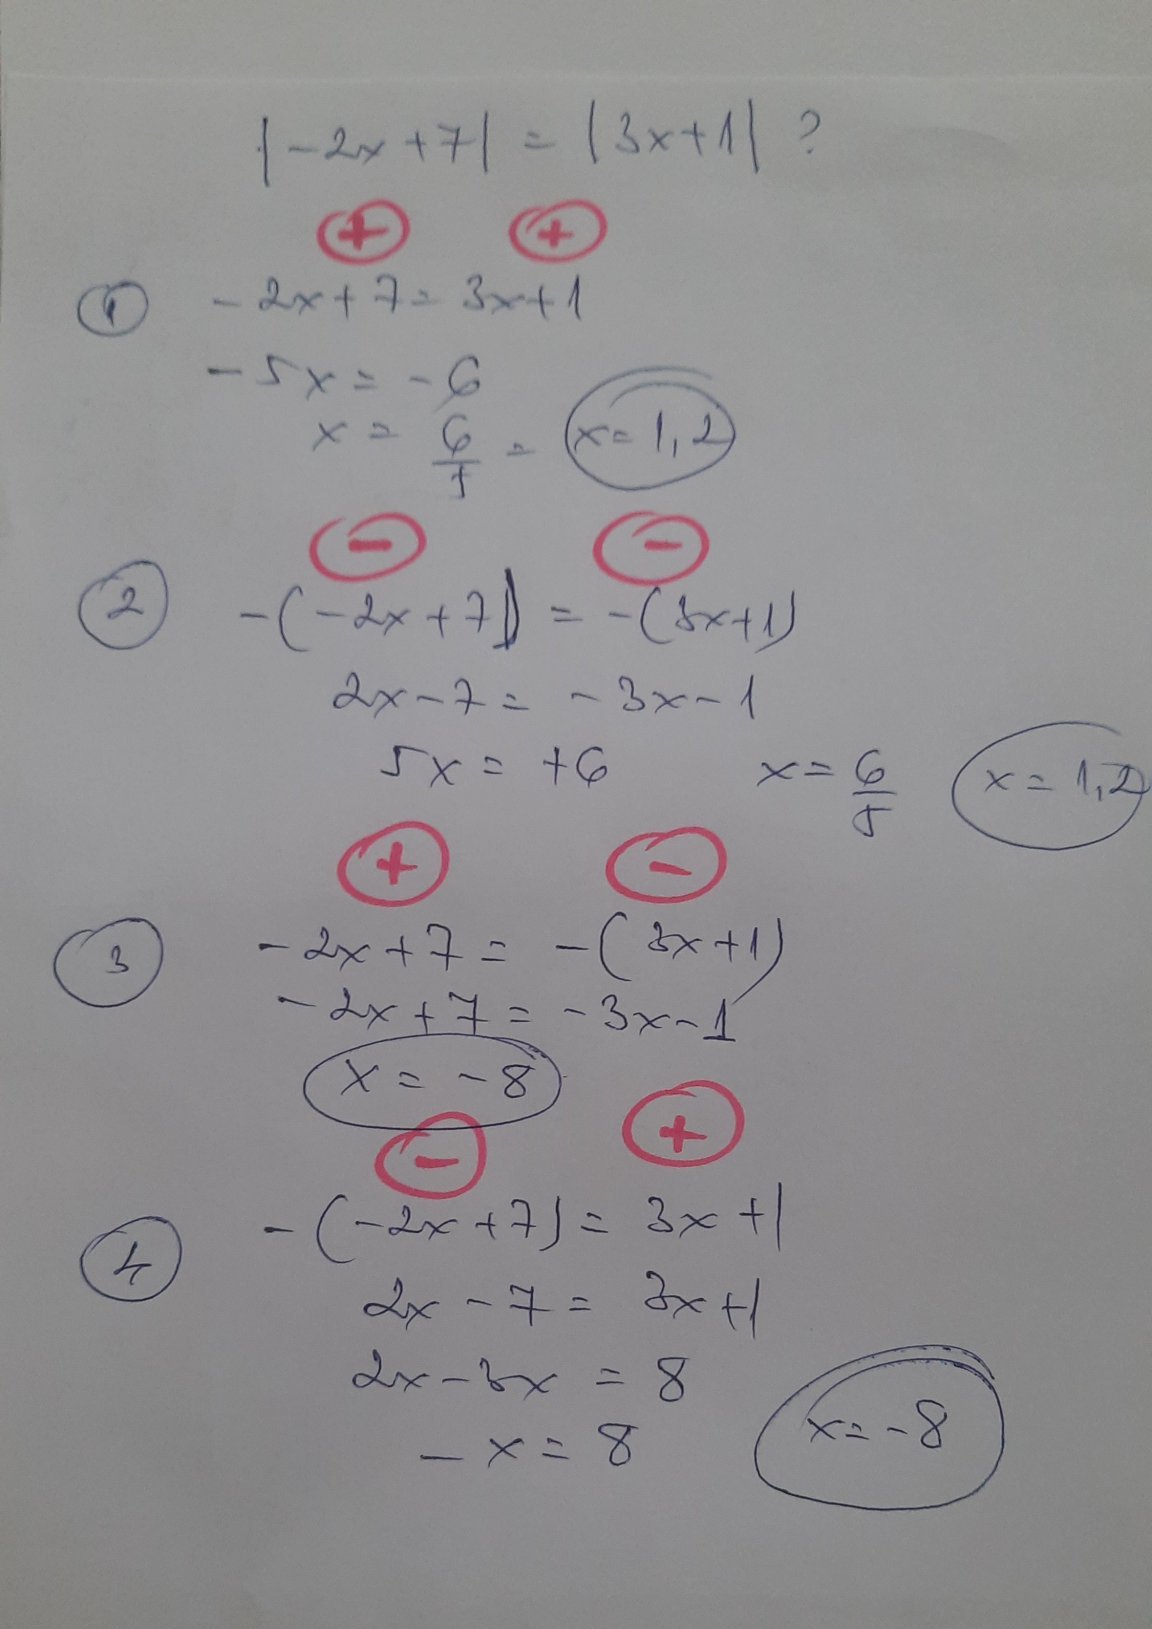 |-2x+7| = |3x+1| ?
+ +
1 -2x+7=3x+1
-5x=-6
x = 6/5 = x=1,2
- -
2 -(-2x+7) = -(3x+1)
2x-7 = -3x-1
5x = +6 x=6/5 x=1,2
+ -
3 -2x+7 = -(3x+1)
-2x+7 = -3x-1
x = -8
- +
4 -(-2x+7) = 3x+1
2x-7 = 3x+1
2x-3x = 8
-x = 8 x=-8